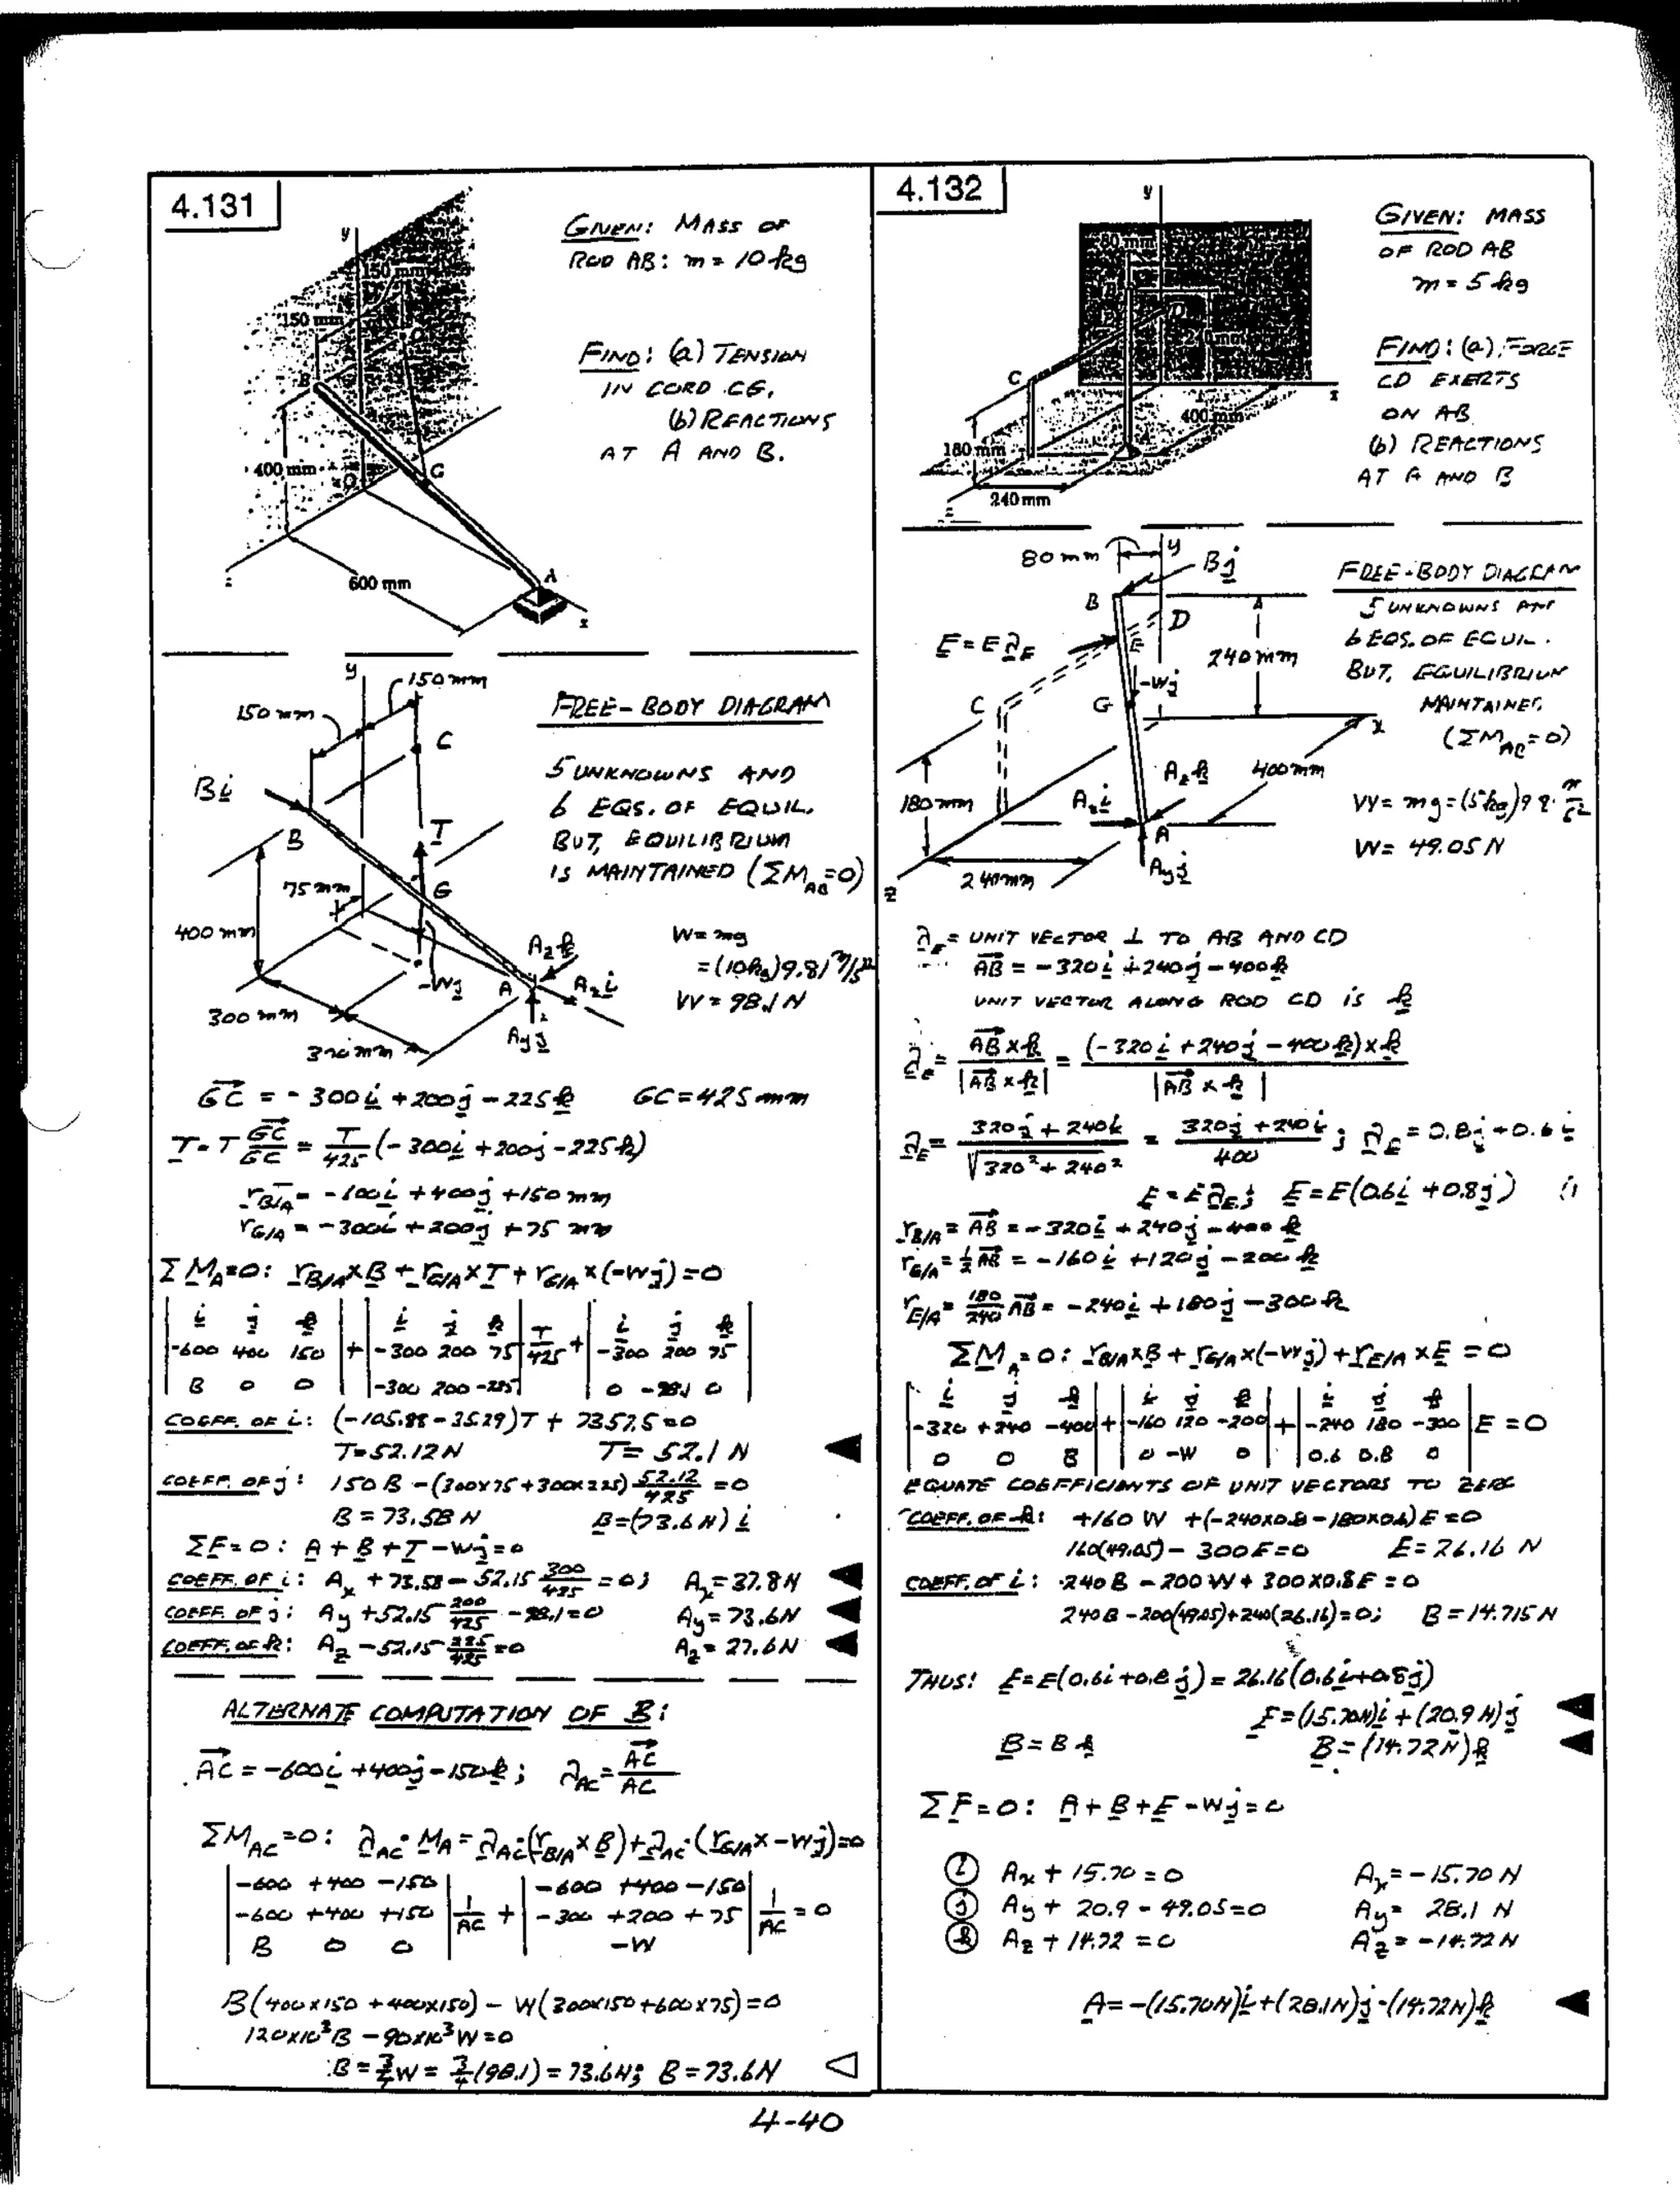 4.131
GIVEN: MASS OF
ROD AB: m = 10 kg
FIND: (a) TENSION
IN CORD CG,
(b) REACTIONS
AT A AND B.
y
150 mm
150 mm
B
400 mm
O
G
A
600 mm
z
x
FREE-BODY DIAGRAM
5 UNKNOWNS AND
6 EQS. OF EQUIL.
BUT, EQUILIBRIUM
IS MAINTAINED (ΣM_AB=0)
y
150 mm
150 mm
C
Bi
B
T
75 mm
G
400 mm
-Wj
A
A_z k
A_x i
A_y j
300 mm
W = mg
=(10kg)9.81 m/s²
W = 98.1 N
GC = -300i +200j -225k GC=425 mm
T = T GC/GC = T/425 (-300i +200j -225k)
r_B/A = -600i +400j +150 mm
r_G/A = -300i +200j +75 mm
ΣM_A=0: r_B/A×B + r_G/A×T + r_G/A×(-Wj)=0
|i j k| |i j k| |i j k|
|-600 400 150| + |-300 200 75| T/425 + |-300 200 75|
|B 0 0| |-300 200 -225| |0 -98.1 0|
COEFF. OF i: (-105.88-35.29)T + 7357.5=0
T=52.12N T= 52.1 N
COEFF. OF j: 150 B -(300×75+300×225) 52.12/425 =0
B = 73.58 N B=(73.6 N) i
ΣF=0: A+B+T-Wj=0
COEFF. OF i: A_x +73.58-52.15 300/425 =0; A_x=37.8N
COEFF OF j: A_y +52.15 200/425 -98.1=0 A_y=73.6N
COEFF. OF k: A_z -52.15 225/425 =0 A_z=27.6N
ALTERNATE COMPUTATION OF B:
AC = -600i +400j -150k; λ_AC = AC/AC
ΣM_AC=0: λ_AC·M_A = λ_AC·(r_B/A×B)+λ_AC·(r_G/A×-Wj)=0
|-600 +400 -150| |-600 +400 -150|
|-600 +400 +150| 1/AC + |-300 +200 +75| 1/AC = 0
|B 0 0| |-W|
B(400×150 +400×150) - W(300×150+600×75)=0
120×10³B -90×10³W=0
B = 3/4 W = 3/4(98.1) = 73.6N; B=73.6N
4.132
GIVEN: MASS
OF ROD AB
m = 5 kg
FIND: (a) FORCE
CD EXERTS
ON AB
(b) REACTIONS
AT A AND B
y
80 mm
B
D
240 mm
C
x
400 mm
180 mm
A
240 mm
z
FREE-BODY DIAGRAM
5 UNKNOWNS AND
6 EQS. OF EQUIL.
BUT, EQUILIBRIUM
MAINTAINED
(ΣM_AB=0)
80 mm
y
Bj
B
D
E = E λ_E
E
240 mm
-Wj
C
G
x
A_z k
400 mm
180 mm
A_x i
A
A_y j
z
240 mm
W= 49.05 N
λ_E = UNIT VECTOR ⊥ TO AB AND CD
AB = -320i +240j -400k
UNIT VECTOR ALONG ROD CD IS k
λ_E = AB×k/|AB×k| = (-320i +240j -400k)×k/|AB×k|
λ_E = 320j + 240k/√320²+240² = 320j +240i/400; λ_E = 0.8j+0.6i
E = Eλ_E; E=E(0.6i +0.8j) (1
r_B/A = AB = -320i +240j -400k
r_G/A = 1/2 AB = -160i +120j -200k
r_E/A = 180/240 AB = -240i +180j -300k
ΣM_A=0: r_B/A×B + r_G/A×(-Wj)+r_E/A×E =0
|i j k| |i j k| |i j k|
|-320 +240 -400| + |-160 120 -200| + |-240 180 -300| E = 0
|0 0 B| |0 -W 0| |0.6 0.8 0|
EQUATE COEFFICIENTS OF UNIT VECTORS TO ZERO
COEFF. OF k: +160 W +(-240×0.8-180×0.6)E=0
160(49.05)- 300E=0 E= 26.16 N
COEFF. OF i: 240B -200W + 300×0.8E =0
240B -200(49.05)+240(26.16)=0; B=14.715N
THUS: E=E(0.6i+0.8j) = 26.16(0.6i+0.8j)
E=(15.70N)i+(20.9 N)j
B=Bk B=(14.72N)k
ΣF=0: A+B+E-Wj=0
(i) A_x + 15.70 = 0 A_x= -15.70 N
(j) A_y + 20.9 - 49.05=0 A_y= 28.1 N
(k) A_z + 14.72 = 0 A_z= -14.72 N
A= -(15.70N)i+(28.1N)j-(14.72N)k
4-40